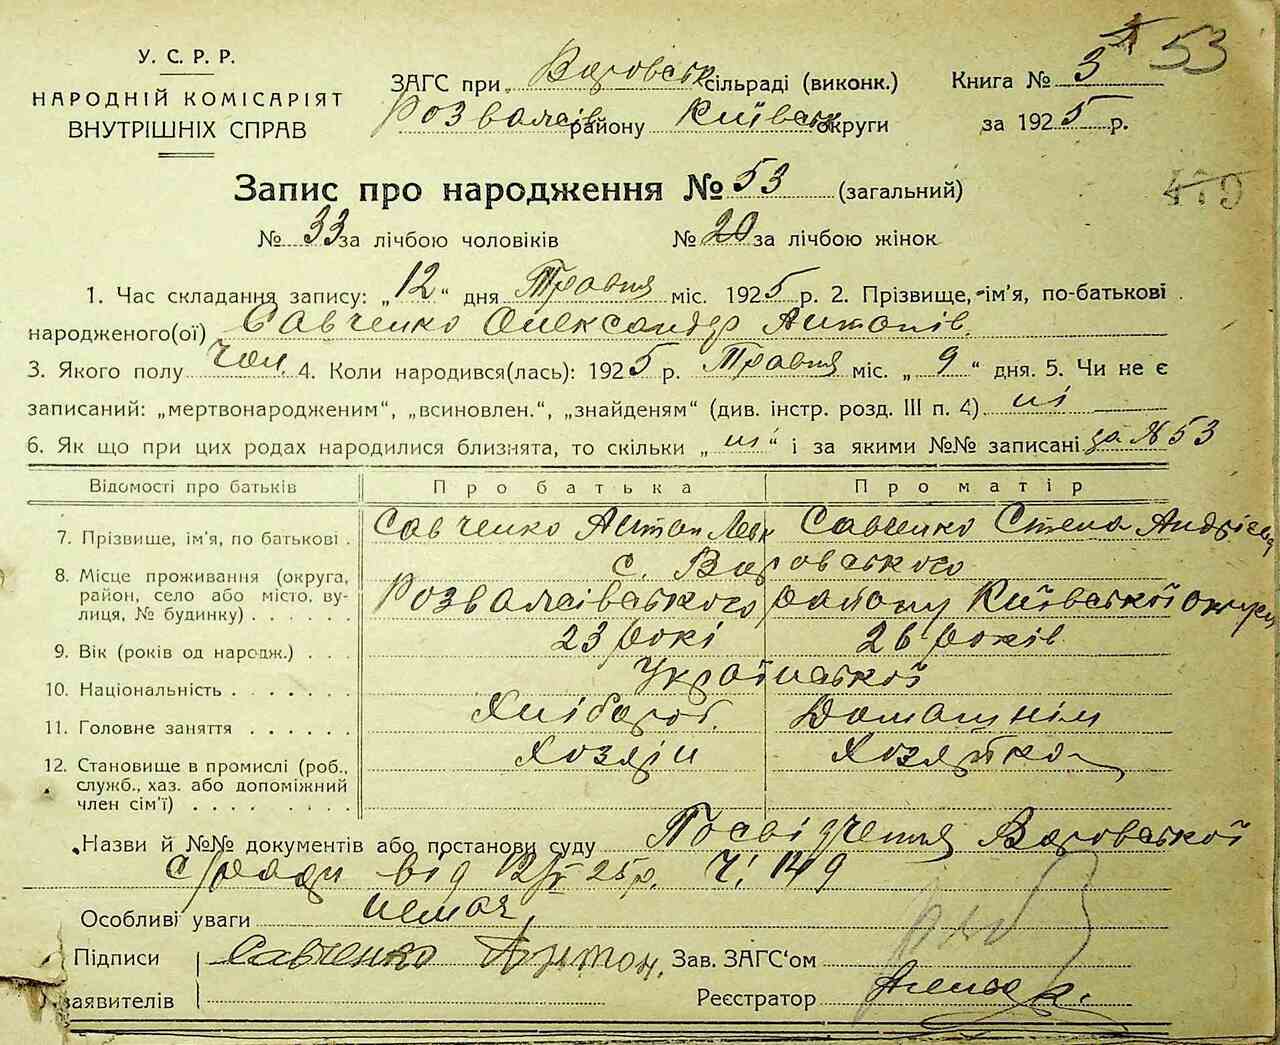 У. С. Р. Р.
НАРОДНІЙ КОМІСАРІЯТ
ВНУТРІШНІХ СПРАВ
ЗАГС при Варовськ сільраді (виконк.)
Розважів району Київськ округи
Книга № 3
за 1925 р.
53
479
Запис про народження № 53 (загальний)
№ 33 за лічбою чоловіків № 20 за лічбою жінок
1. Час складання запису: „12“ дня Травня міс. 1925 р. 2. Прізвище, ім'я, по-батькові
народженого(ої) Савченко Олександр Антонів.
3. Якого полу Чол. 4. Коли народився(лась): 1925 р. Травня міс. „9“ дня. 5. Чи не є
записаний: „мертвонародженим“, „всиновлен.“, „знайденям“ (див. інстр. розд. III п. 4) ні
6. Як що при цих родах народилися близнята, то скільки „ні“ і за якими №№ записані за № 53
Відомості про батьків Про батька Про матір
7. Прізвище, ім'я, по батькові . Савченко Антон Левк Савченко Степа Андрієва
8. Місце проживання (округа, с. Варовського
район, село або місто, ву- Розважівського району Київської округи
лиця, № будинку) . . . . . .
9. Вік (років од народж.) . . . 23 рокі 26 років
10. Національність . . . . . . . Української
11. Головне заняття . . . . . . Хлібороб. Домашнім
12. Становище в промислі (роб., Хозяїн Хозяйка
служб., хаз. або допоміжний
член сім'ї) . . . . . . .
Назви й №№ документів або постанови суду Посвідчення Варовської
с/ради від 12/V 25 р. Ч: 149
Особливі уваги немає
Підписи Савченко Антон. Зав. ЗАГС'ом
заявителів Реєстратор